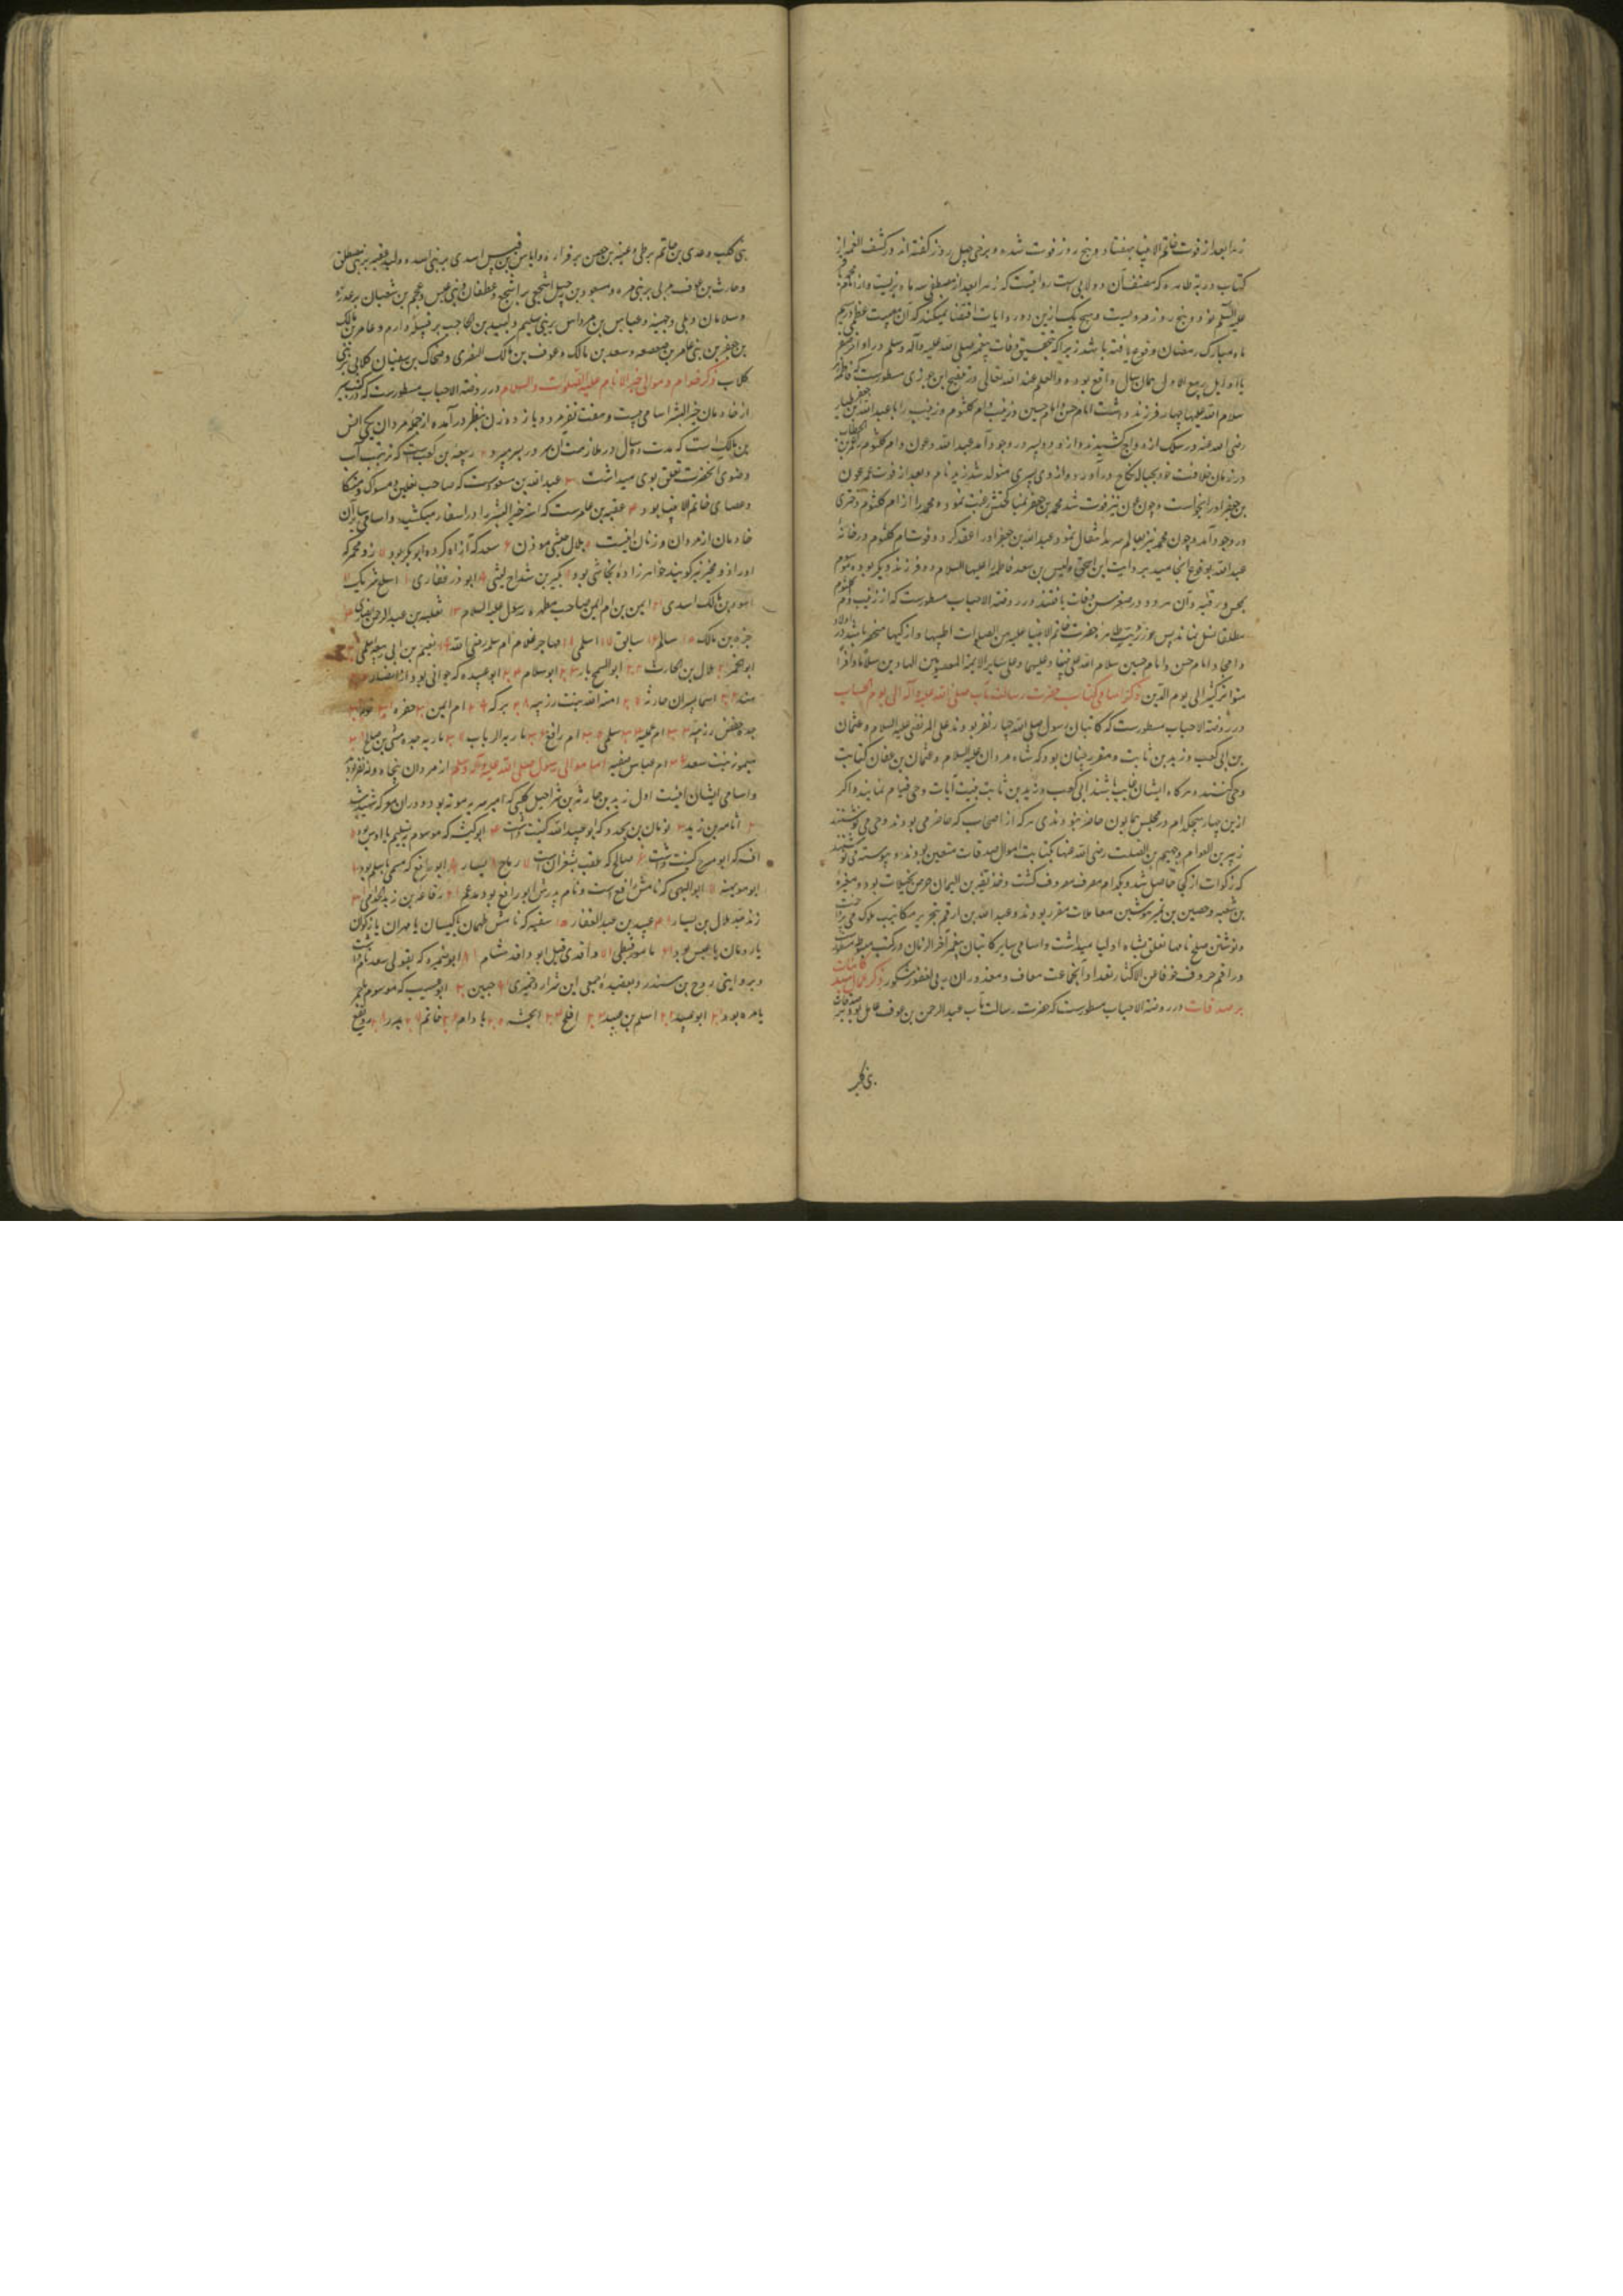 زهرا بعد از فوت خاتم الانبیا بهفتاد و پنج روز فوت شده و برخی چهل روز گفته اند و در کشف الغمه از
کتاب ذریه طاهره که مصنف آن دولابی است روایتست که زهرا بعد از مصطفی سه ماه بزیست و از
علیه السلام نود و پنج روز مرویست و هیچ یک ازین دو روایات اقتضا نمیکند که آن مصیبت عظمی در
ماه مبارک رمضان وقوع یافته باشد زیرا که بتحقیق وفات پیغمبر صلی الله علیه وآله وسلم در اواخر صفر
یا اوایل ربیع الاول همان سال واقع بوده والعلم عند الله تعالی و در تنقیح ابن جوزی مسطورست که فاطمه
سلام الله علیها چهار فرزند داشت امام حسن و امام حسین و زینب و ام کلثوم و زینب را با عبدالله بن جعفر طیار
رضی الله عنه در سلک ازدواج کشیدند و از و دو پسر در وجود آمد عبدالله و عون و ام کلثوم را عمر بن الخطاب
در زمان خلافت خود بحباله نکاح درآورد و از وی پسری متولد شد زید نام و بعد از فوت عمر عون
بن جعفر او را بخواست و چون عون نیز فوت شد محمد بن جعفر بمناکحتش رغبت نموده و محمد را از ام کلثوم دختری
در وجود آمد و چون محمد نیز بعالم سرمد انتقال نمود عبدالله بن جعفر او را عقد کرد و فوت ام کلثوم در خانه
عبدالله بوقوع انجامید بروایت ابن اسحق و لیس بن سعد فاطمه را علیها السلام دو فرزند دیگر بوده موسوم
بمحسن و رقیه و آن هر دو در صغر سن وفات یافتند و در روضة الاحباب مسطورست که از زینب و ام کلثوم
مطلقا نسل نماند پس حضرت خاتم الانبیا علیه من الصلوات اطیبها و ازکیها منحصر باشد در اولاد
و امجاد امام حسن و امام حسین سلام الله علی نبینا و علیهما و علی سایر الائمة المعصومین الهادین سلاما وافرا
متواتر کثیرا الی یوم الدین ذکر اسامی کتاب حضرت رسالت مآب صلی الله علیه وآله الی یوم الحساب
در روضة الاحباب مسطورست که کاتبان رسول صلی الله چهار نفر بودند علی المرتضی علیه السلام و عثمان
بن ابی کعب و زید بن ثابت و مقرر چنان بود که شاه مردان علیه السلام و عثمان بن عفان کتابت
وحی کنند و هرگاه ایشان غایب باشند ابی کعب و زید بن ثابت بثبت آیات وحی قیام نمایند و اگر
ازین چهار هیچکدام در مجلس همایون حاضر نبودندی هرکه از اصحاب که حاضر می بودند وحی می نوشتند
زبیر بن العوام و جهیم بن الصلت رضی الله عنهما بکتابت اموال صدقات متعین بودند و پیوسته می نوشتند
که زکوات از کجا حاصل شد و بکدام مصرف معروف گشت و حذیفه بن الیمان خرص نخیلات بود و مغیره
بن شعبه و حصین بن نمیر معاملات مقرر بودند و عبدالله بن ارقم بتحریر مکاتیب ملوک می پرداخت
و نوشتن صلح نامها تعلق بشاه اولیا میداشت و اسامی سایر کاتبان پیغمبر آخر الزمان در کتب مبسوط مسطورست
و راقم حروف خوفا من الاکثار تعداد آنجماعت معاف و معذور ذکر عمال سید کاینات
بر صدقات در روضة الاحباب مسطورست که حضرت رسالت مآب عبدالرحمن بن عوف عامل بود صدقات
بنی کلب
بنی کلب و عدی بن حاتم بر طی و عیینه بن حصن بر فزاره و ایاس بن قیس اسدی بر بنی اسد و ولید عقبه بر بنی مصطلق
و حارث بن عوف مری بر بنی مره و مسعود بن رحیل اشجعی بر اشجع و غطفان و بنی عبس و عجم بن سفیان بر عذره
و سلامان و بلی و جهینه و عباس بن مرداس بر بنی سلیم و لبید بن حاجب بر قبیله دارم و عامر بن مالک
بن جعفر بن بنی عامر بن صعصعه و سعد بن مالک و عوف بن مالک النصری و ضحاک بن سفیان کلابی بر بنی
کلاب ذکر خدام و موالی خیر الانام علیه الصلوات والسلام در روضة الاحباب مسطورست که در کتب سیر
از خادمان خیر البشر اسامی بیست و هفت نفر مرد و یازده زن بنظر درآمده از جمله مردان یکی انس
بن مالک است که مدت ده سال در ملازمت آن سرور بسر میبرد ۲ ربیعه بن کعب است که ترتیب آب
وضوی آنحضرت تعلق بوی میداشت ۳ عبدالله بن مسعود است که صاحب نعلین و مسواک و متکا
و عصای خاتم الانبیا بود ۴ عقبه بن عامر است که استر خیر البشر را در اسفار میکشید و اسامی سایر آن
خادمان از مردان و زنان اینست ۵ بلال حبشی موذن ۶ سعد که آزاد کرده ابوبکر بود ۷ ذو مخمر که
او را ذو مخبر نیز گویند خواهر زاده نجاشی بود ۸ بکیر بن شداخ لیثی ۹ ابوذر غفاری ۱۰ اسلع شریک ۱۱
اسود بن مالک اسدی ۱۲ ایمن بن ام ایمن صاحب مطهره رسول علیه السلام ۱۳ ثعلبه بن عبدالرحمن انصاری ۱۴
جزء بن مالک ۱۵ سالم ۱۶ سابق ۱۷ اسلمی ۱۸ مهاجر غلام ام سلمه رضی الله ۱۹ نعیم بن ابی ربیعه اسلمی ۲۰
ابو الحمرا ۲۱ هلال بن الحارث ۲۲ ابو السمح ایاد ۲۳ ابو سلام ۲۴ ابو عبیده که جوانی بود از انصار ۲۵
هند ۲۶ اسما پسران حارثه ۲۷ امة الله بنت رزینه ۲۸ برکه ۲۹ ام ایمن ۳۰ خضره ۳۱
جده حفص رزینه ۳۲ ام عیله ۳۳ سلمی ۳۵ ام رافع ۳۶ ماریه ام الرباب ۳۷ ماریه جده مثنی بن صالح ۳۸
میمونه بنت سعد ام عیاش صفیه اما موالی رسول صلی الله علیه وآله وسلم از مردان پنجاه و نه نفر بود
و اسامی ایشان اینست اول زید بن حارثه بن شراحیل کلبی که امیر سریه موته بود و در آن معرکه شهید شد
۲ اسامه بن زید ۳ ثوبان بن بجدد که ابو عبدالله کنیت داشت ۴ ابو کبشه که موسوم بسلیم یا اوس بود ۵
انسه که ابو مسرح کنیت داشت ۶ صالح که ملقب بشقران است ۷ رباح ۸ یسار ۹ ابو رافع که مسمی باسلم بود ۱۰
ابو مویهبه ۱۱ ابو البهی که نامش رافع است و نام پدرش ابو رافع بود مدعم ۱۲ رفاعه بن زید جذامی ۱۳
زید جد هلال بن یسار ۱۴ عبید بن عبدالغفار ۱۵ سفینه که نامش طهمان یا کیسان یا مهران یا ذکوان
یا رومان یا عبس بود ۱۶ مابور قبطی ۱۷ واقدی قیل بو واقد هشام ۱۸ ابو ضمیره که بقولی سعد نام داشت
و بروایتی روح بن سندر و بعقیده جمعی ابن شیرزاد حمیری ۱۹ حنین ۲۰ ابو عسیب که موسوم باحمر
یا مره بود ۲۱ ابو عبید ۲۲ اسلم بن عبید ۲۳ افلح ۲۴ انجشه ۲۵ باذام ۲۶ حاتم ۲۷ بدر ۲۸ رویفع